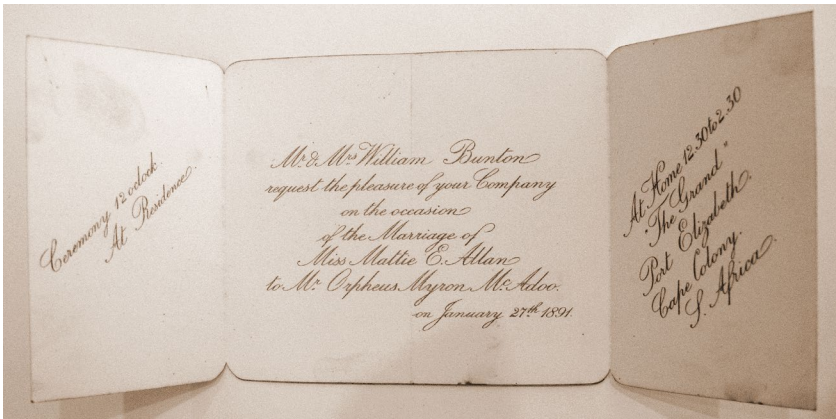 Ceremony 12 oclock.
At Residence.
Mr. & Mrs William Bunton
request the pleasure of your Company
on the occasion
of the Marriage of
Miss Mattie E. Allan
to Mr. Orpheus Myron McAdoo.
on January 27th 1891.
At Home 12.30 to 2.30
"The Grand"
Port Elizabeth.
Cape Colony.
S. Africa.